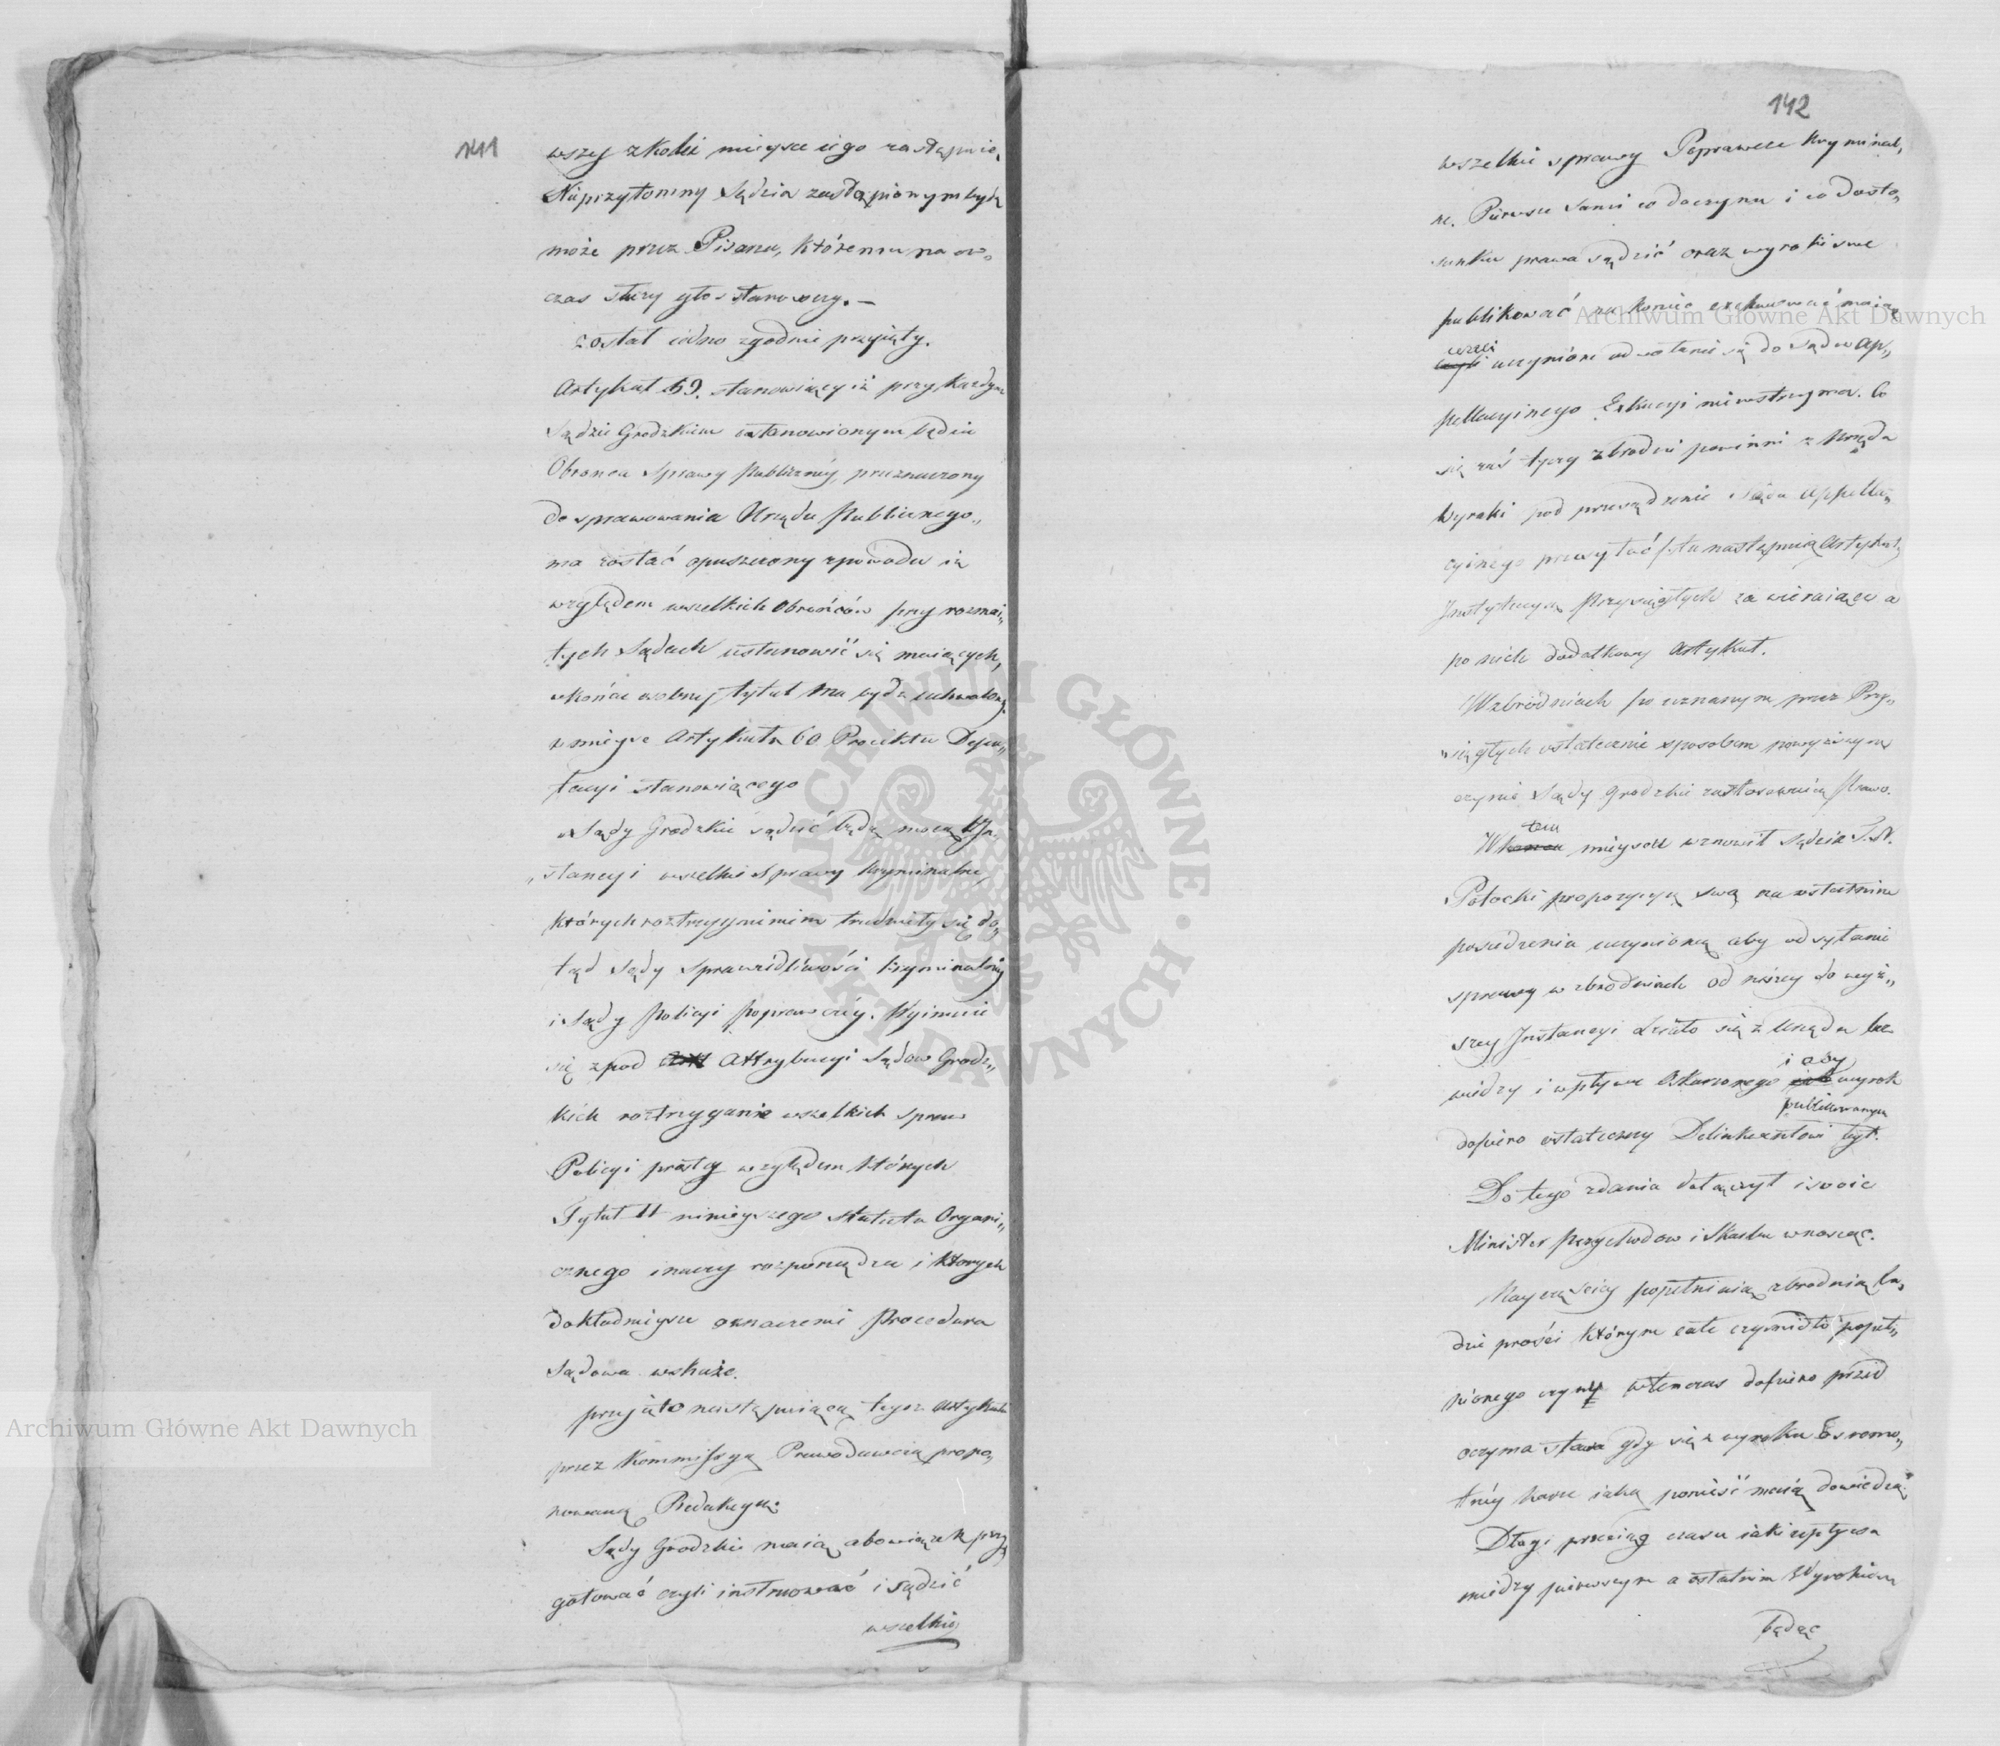 141
wszey z kolei mieysce iego zastąpnie,
Nieprzytomny Sędzia zastąpionym bydź
może przez Pisarza, któremu na ow„
czas służy głos stanowczy. —
został iedno zgodnie przyięty.
Artykuł 59. stanowiący iż przy każdym
Sądzie Grodzkim ustanowionym będzie
Obronca Sprawy Publiczney, przeznaczony
do sprawowania Urzędu Publicznego„
ma zostać opuszczony z powodu iż
względem wszelkich Obrońców przy rozmai„
tych Sądach ustanowić się maiących,
w końcu osobny tytuł ma bydź uchwalony.
w mieysce Artykułu 60 Proiektu Depu„
tacyi stanowiącego
„Sądy Grodzkie sądzić będą mocą In„
„stancyi wszelkie Sprawy Kryminalne,
których roztrzygnieniem trudniły się do„
tąd Sądy Sprawiedliwości Kryminalney
i Sądy Policyi Poprawczéy. Wyimuie
się z pod Attrybucyi Sądow Grodz„
kich roztrzyganie wszelkich spraw
Policyi prostey względem których
Tytuł II ninieyszego Statutu Organi„
cznego inaczy rozporządza i których
dokładnieysze oznaczenie Procedura
Sądowa wskaże.
przyięto następuiącą tegoż Artykułu
przez Kommissyą Prawodawczą propo„
nowaną Redakcyą.
Sądy Grodzkie maią obowiązek przy„
gotować czyli instruować i sądzić
wszelkie
142
wszelkie sprawy Poprawcze Kryminal„
ne. Pierwsze Sami co do czynu i co do sto„
sunku prawa sądzić oraz wyroki swe
publikować na koniec exekwować maią
ieżeli
uczynione odwołanie się do Sądu Ap„
pellacyinego Exekucyi niewstrzyma. Co
się zaś tyczy zbrodni powinni z Urzędu
Wyroki pod przesądzenie Sądu Appella„
cyinego przesyłać /: tu następuią Artykuły
Instytucyą Przysięgłych zawieraiące a
po nich dodatkowy Artykuł.
W zbrodniach po uznanym przez Przy„
„sięgłych ostatecznie sposobem powyższym
czynie Sądy Grodzkie zastosowuią Prawo.
tem
W mieyscu wznowił Sędzia S. N.
Potocki propozycyą swą na ostatnim
posiedzeniu uczynioną aby odsyłanie
sprawy w zbrodniach od niższey do wyż„
szey Instancyi działo się z Urzędu bez
i aby
wiedzy i wpływu Oskarżonego wyrok
publikowanym
dopiero ostateczny Delinkwentowi był.
Do tego zdania dołączył i swoie
Minister Przychodow i Skarbu wnosząc.
Nayczęściey popełniaią zbrodnią lu„
dzie prości którym całe czynidło popeł„
nionego czynu wtenczas dopiero przed
oczyma stawa gdy się z wyroku o sromo„
tnéy karze iaką ponieść maią dowiedzą.
Długi przeciąg czasu iaki upływa
miedzy pierwszym a ostatnim Wyrokiem
będąc
Archiwum Główne Akt Dawnych
Archiwum Główne Akt Dawnych
ARCHIWUM GŁÓWNE · AKT DAWNYCH ·